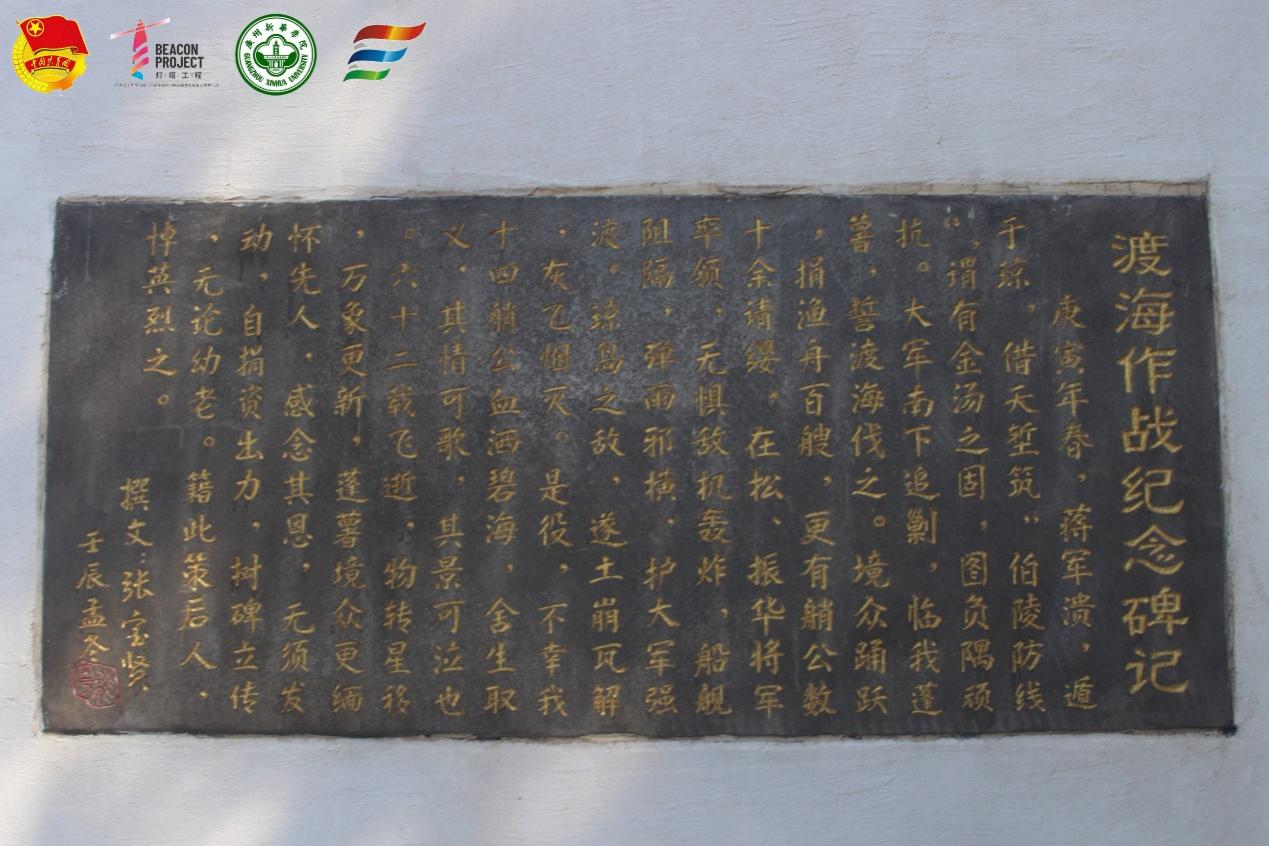 BEACON
PROJECT
灯塔工程
廣州新華學院
GUANGZHOU XINHUA UNIVERSITY
渡海作战纪念碑记
庚寅年春，蒋军溃，遁
于琼，借天堑筑"伯陵防线
"，谓有金汤之固，图负隅顽
抗。大军南下追剿，临我蓬
薯，誓渡海伐之。境众踊跃
，捐渔舟百艘，更有艄公数
十余请缨，在松、振华将军
率领，无惧敌机轰炸，船舰
阻隔，弹雨邪横，护大军强
渡。琼岛之敌，遂土崩瓦解
，灰飞烟灭。是役，不幸我
十四艄公血洒碧海，舍生取
义，其情可歌，其景可泣也
。六十二载飞逝，物转星移
，万象更新，蓬薯境众更缅
怀先人，感念其恩，无须发
动，自捐资出力，树碑立传
，无论幼老。籍此策后人，
悼英烈之。
撰文：张宝贤
壬辰孟冬